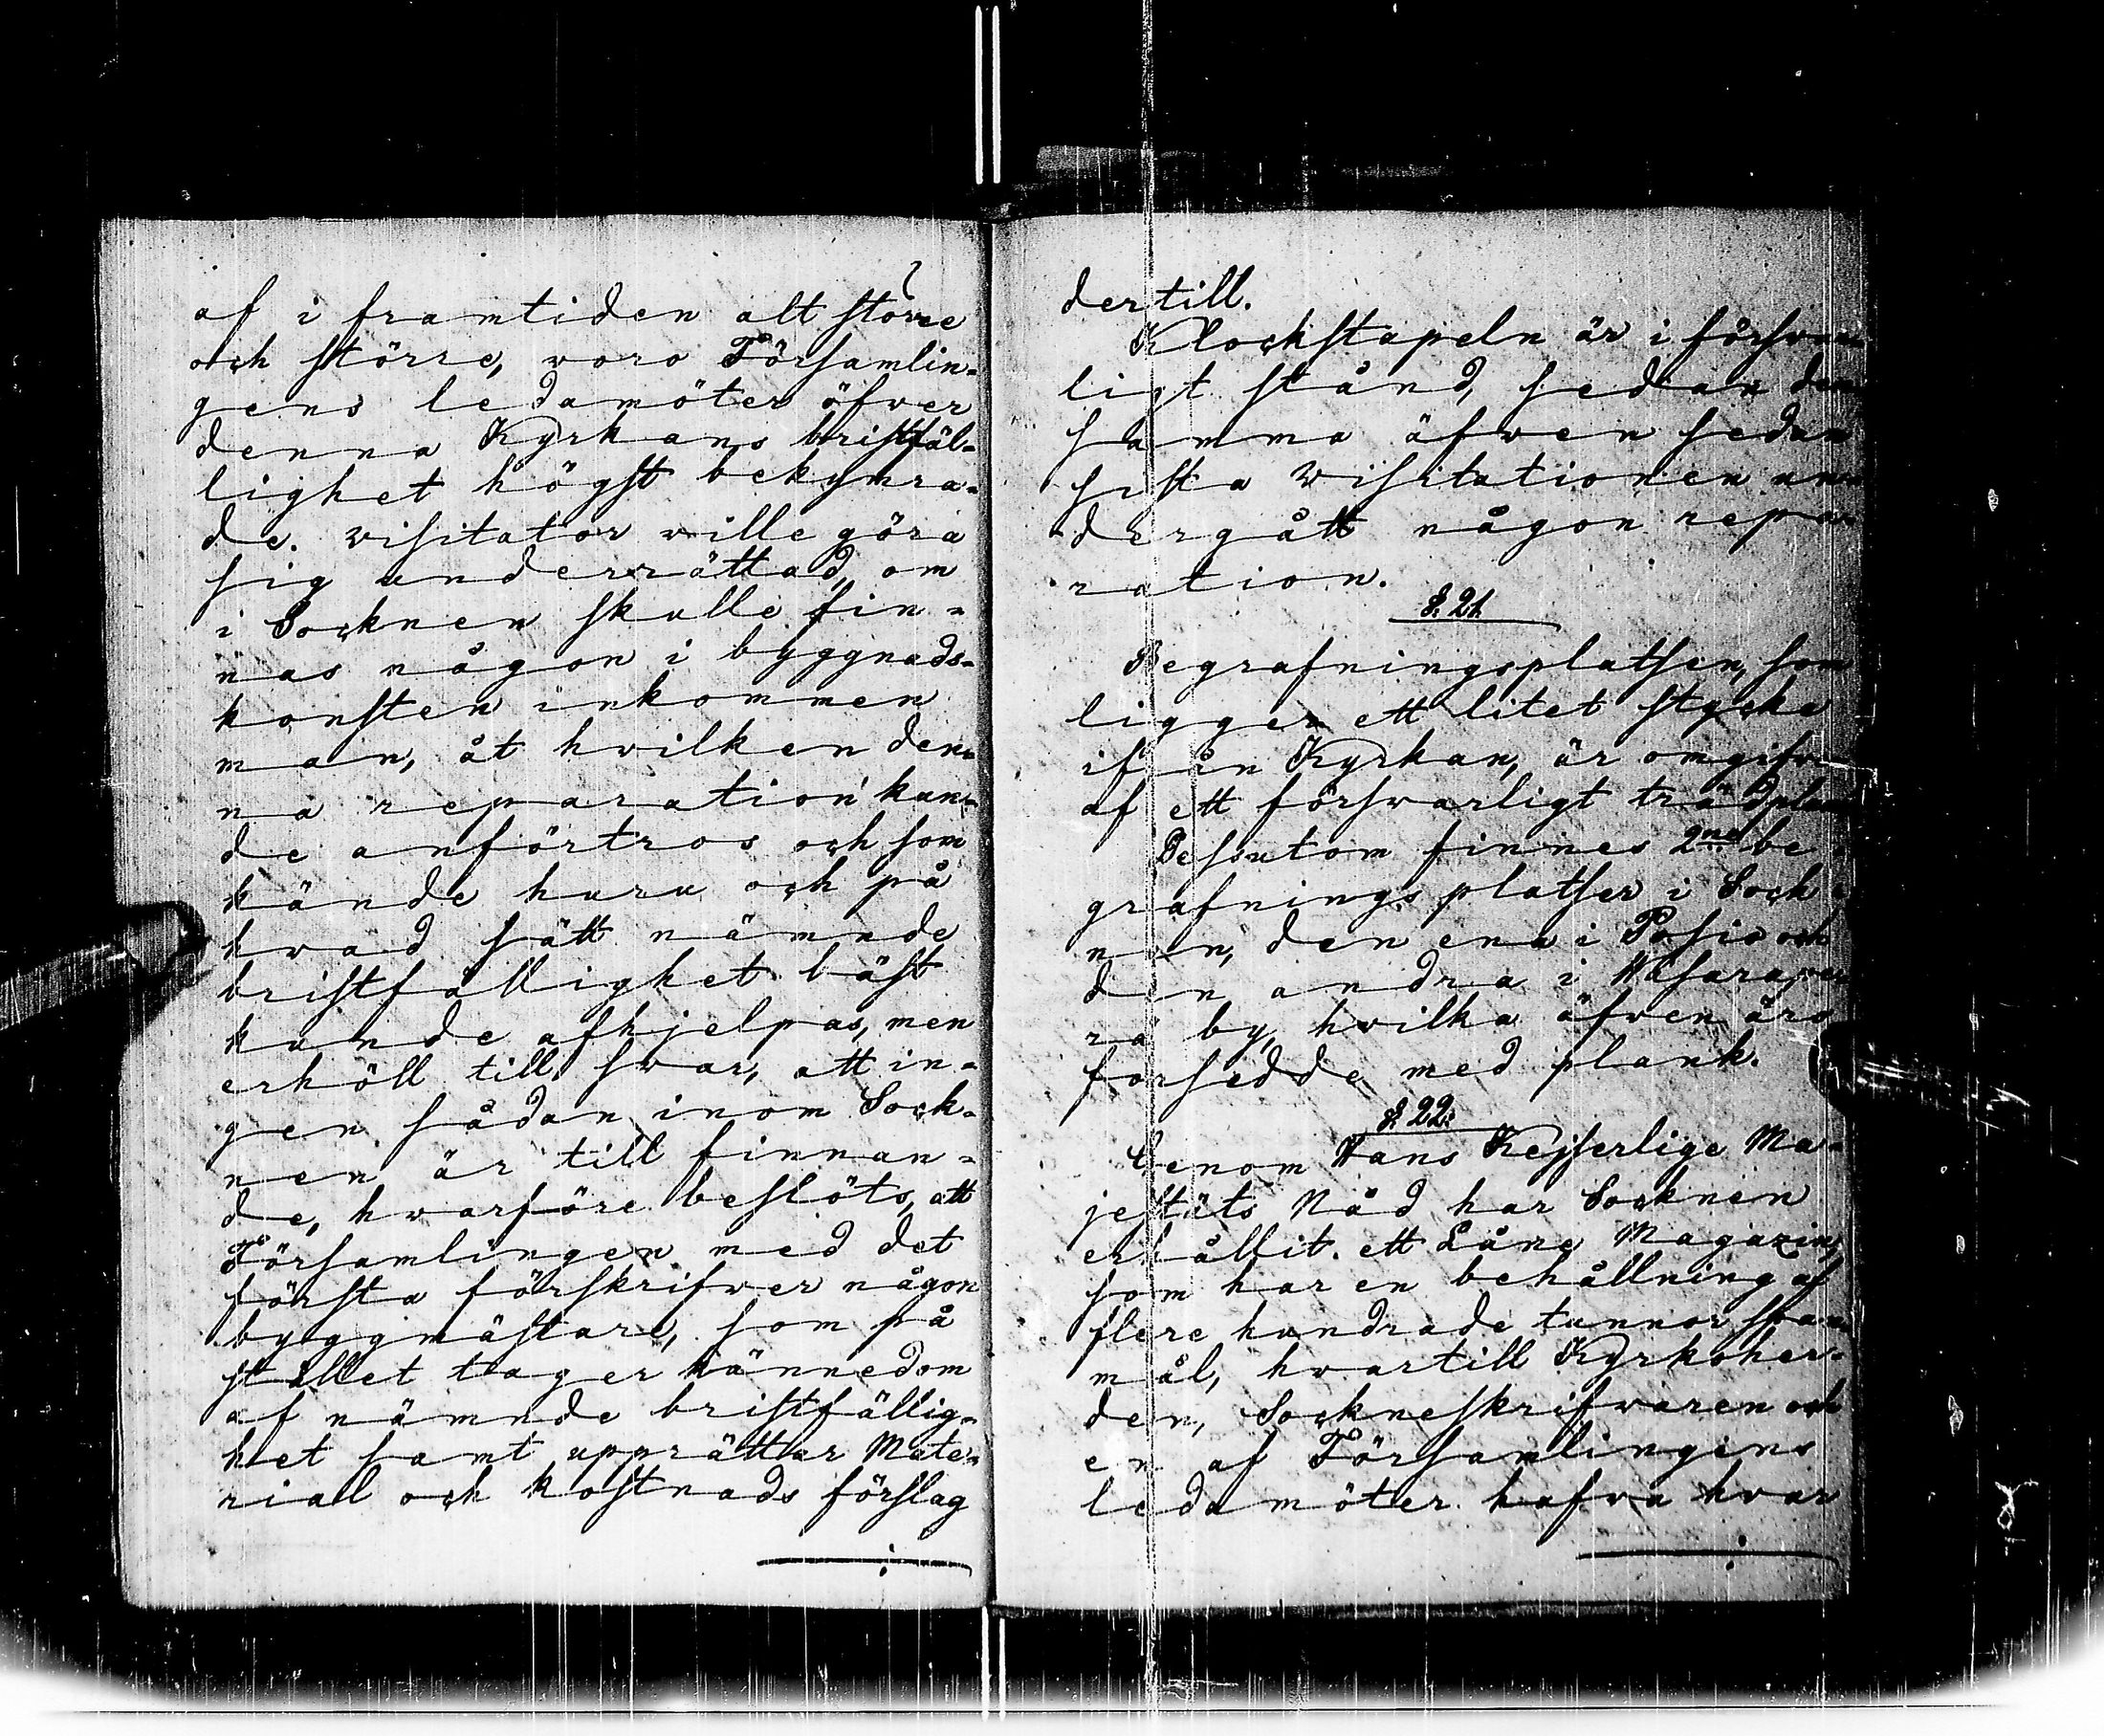 af i framtiden alt större
och större, woro Församlin-
gens ledamöter öfwer
denna Kyrkans bristfäl-
lighet högst bekymra-
de. Visitator wille göra
sig underrättad, om
i Socknen skulle fin-
nas någon i byggnads-
konsten inkommen
man, åt hvilken den-
na reparation kun-
de anförtros och som
kände huru och på
hvad sätt nämnde
bristfällighet bäst
kunde afhjelpas, men
erhöll till swar, att in-
gen sådan inom Sock-
nen är till finnan-
de, hwarföre beslöts, att
Församlingen med det
första förskrifwer någon
byggmästare, som på
stället tager kännedom
af nämnde bristfällig-
het samt upprättar Mate-
rial och kostnads förslag
dertill.
Klockstapeln är i förswar
ligt stånd, sedan den
samma äfwen sedan
sista Visitationen un
dergått någon repa
ration.
§. 21.
Begrafningsplatsen, som
ligger ett litet stycke
ifrån Kyrkan, är omgifw
af ett förswarligt trädplan
Dessutom finnes 2ne be
grafningsplatser i Sock
nen, den ena i Posio och
den andra i
rä by, hvilka äfwen äro
försedde med plank.
§. 22.
Genom Hans Kejserlige Ma-
jestäts Nåd har Socknen
erhållit ett Låne Magazin,
som har en behållning af
flere hundrade tunnor span
mål, hwartill Kyrkoher-
den, Sockneskrifwaren och
en af Församlingens
ledamöter hafva hvar